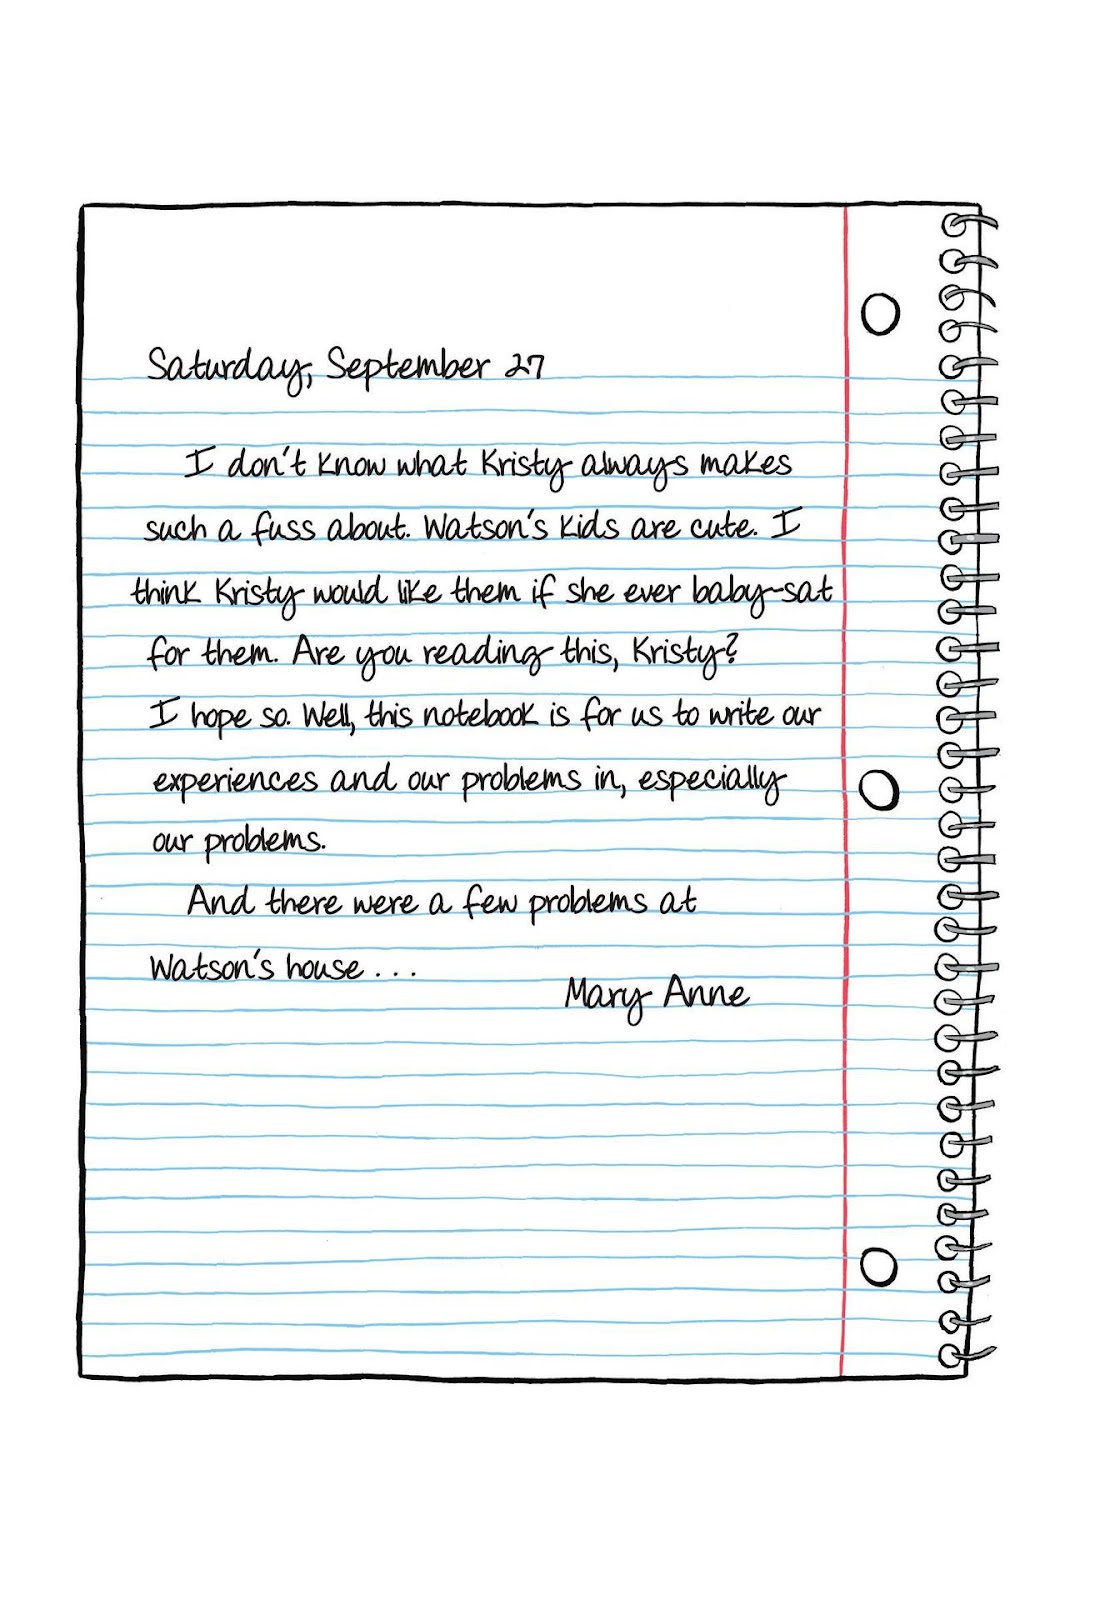 Saturday, September 27
I don't know what Kristy always makes
such a fuss about. Watson's kids are cute. I
think Kristy would like them if she ever baby-sat
for them. Are you reading this, Kristy?
I hope so. Well, this notebook is for us to write our
experiences and our problems in, especially
our problems.
And there were a few problems at
Watson's house...
Mary Anne